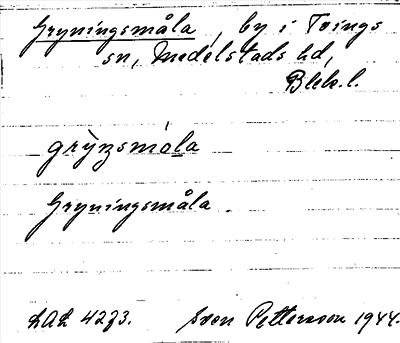 Gryningsmåla, by i Tvings
sn, Medelstads hd,
Blek.l.
grỳṉsmåla
Gryningsmåla.
LAL 4273. Sven Pettersson 1944.